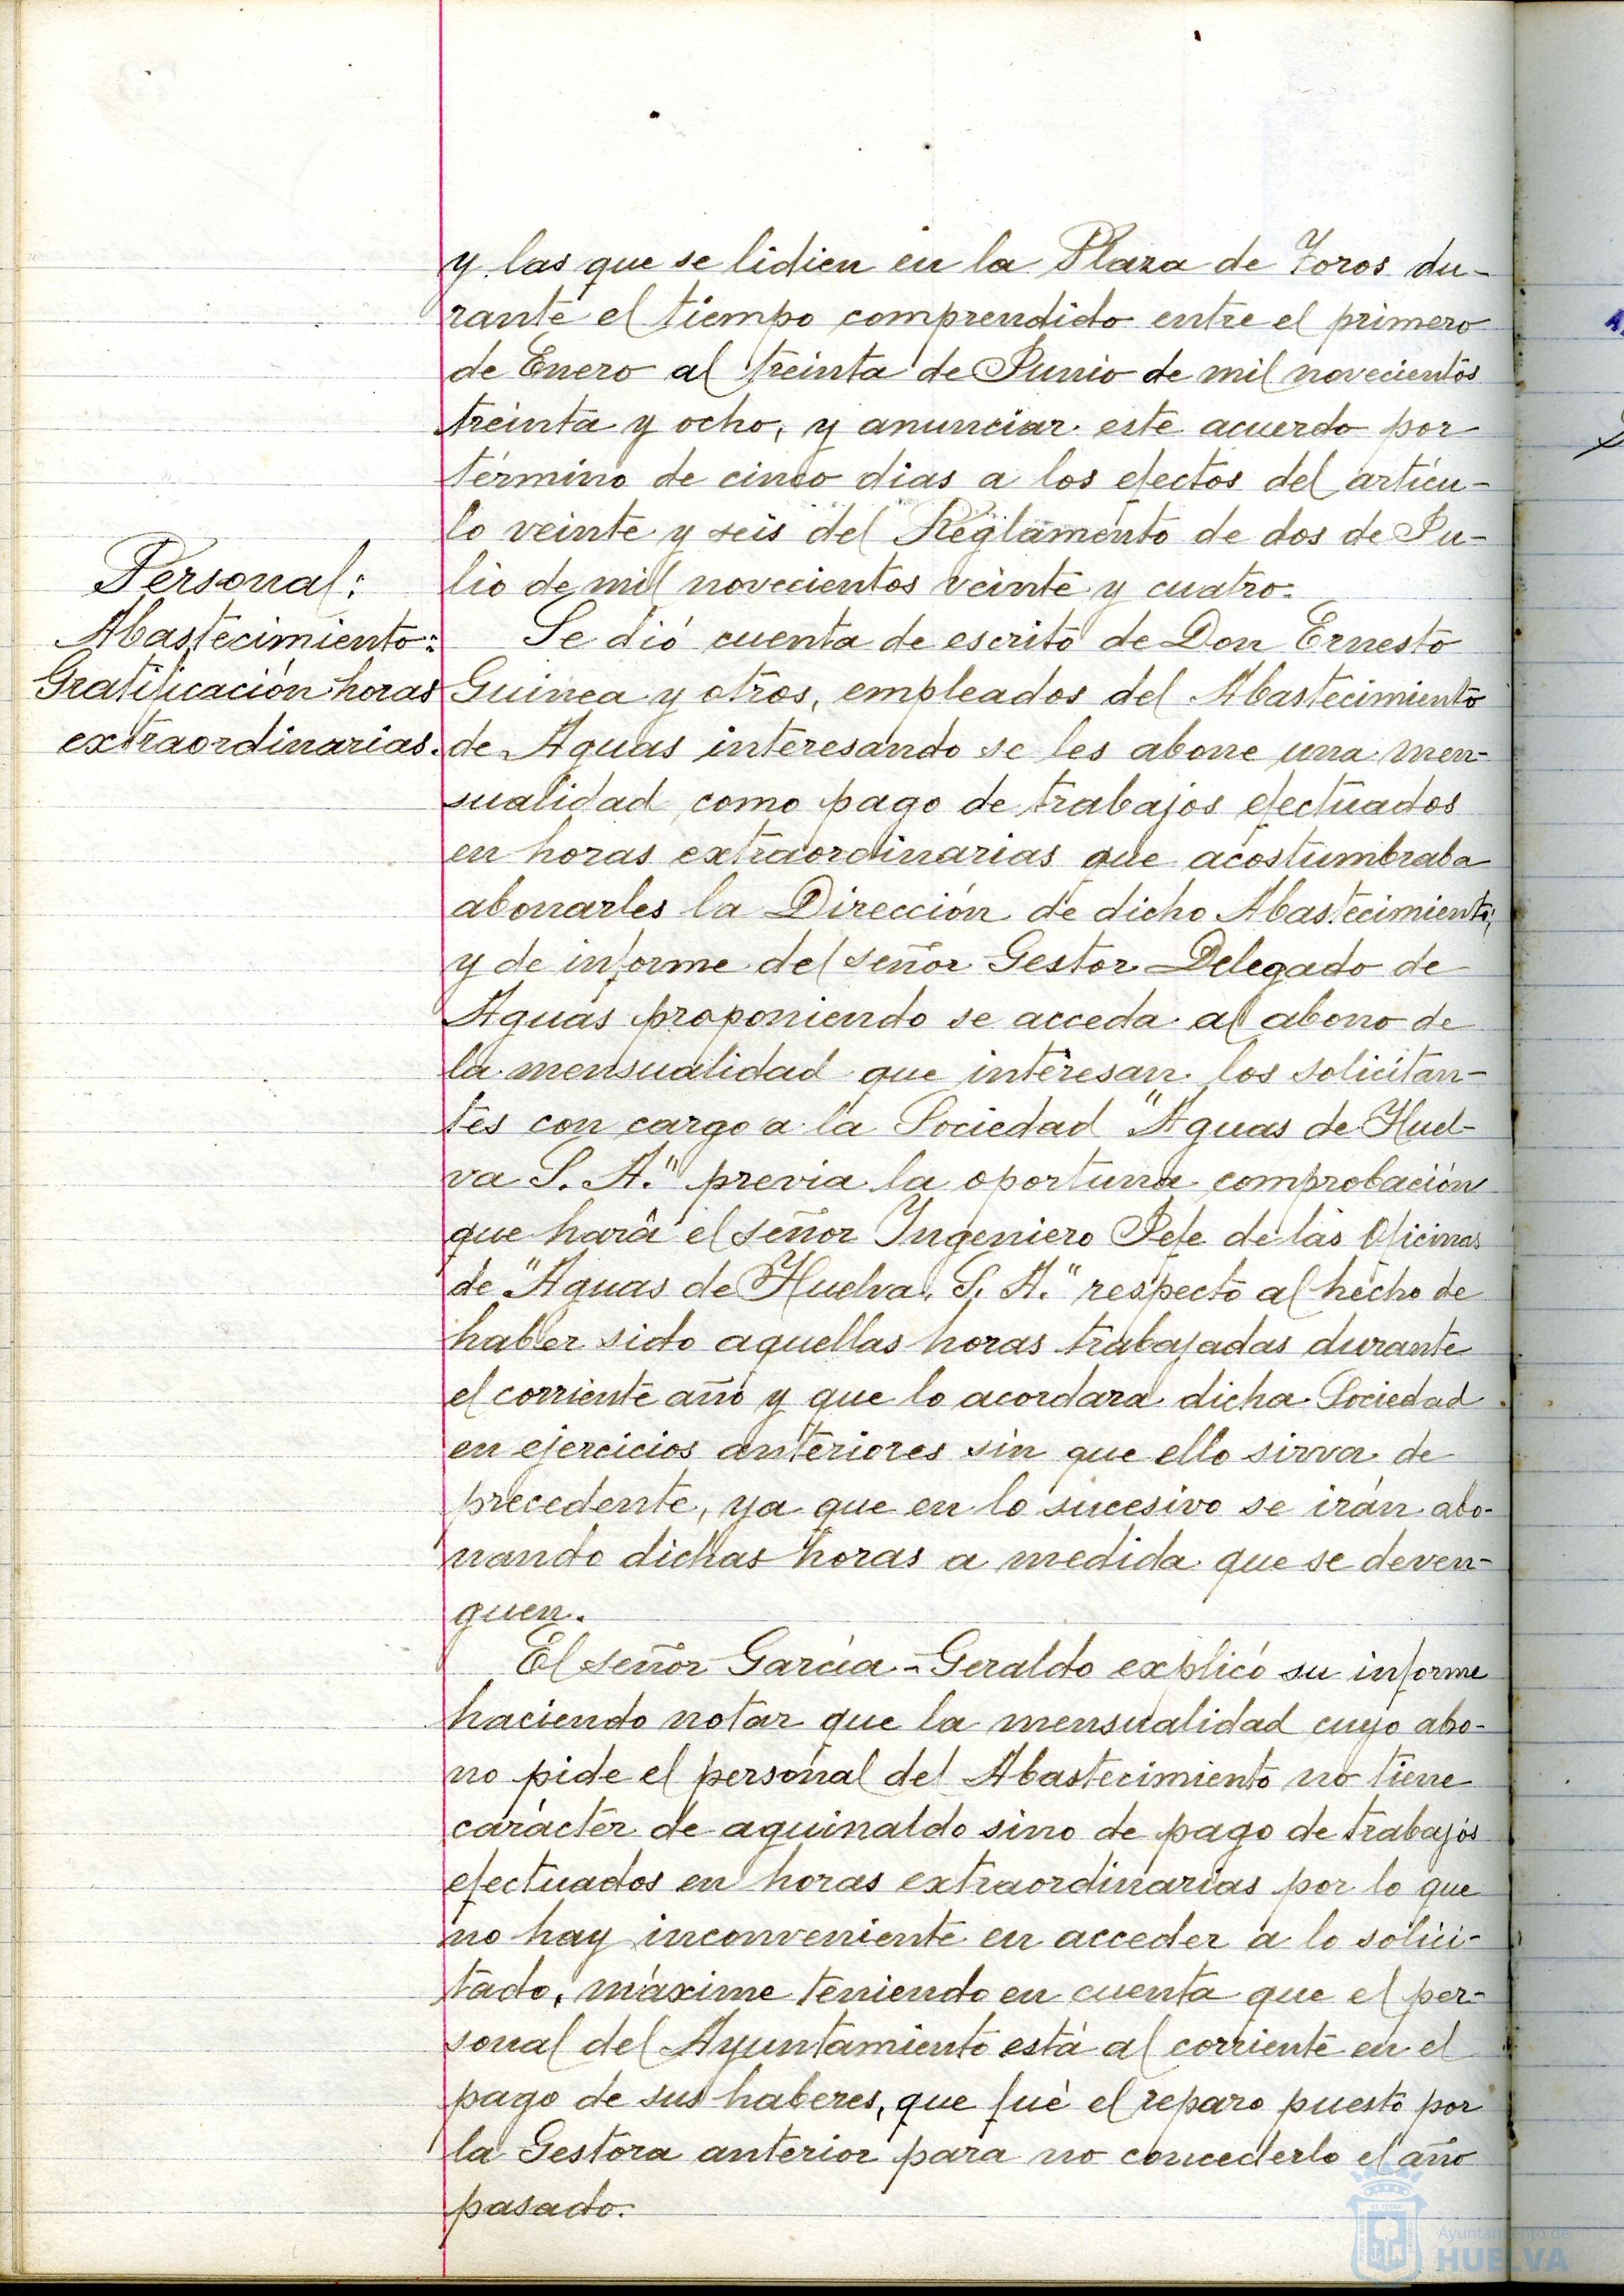 y las que se lidien en la Plaza de Toros du-
rante el tiempo comprendido entre el primero
de Enero al treinta de Junio de mil novecientos
treinta y ocho, y anunciar este acuerdo por
término de cinco dias a los efectos del artícu-
lo veinte y seis del Reglamento de dos de Ju-
lio de mil novecientos veinte y cuatro.
Personal:
Abastecimiento:
Gratificación horas
extraordinarias.
Se dió cuenta de escrito de Don Ernesto
Guinea y otros, empleados del Abastecimiento
de Aguas interesando se les abone una men-
sualidad como pago de trabajos efectuados
en horas extraordinarias que acostumbraba
abonarles la Dirección de dicho Abastecimiento;
y de informe del señor Gestor Delegado de
Aguas proponiendo se acceda al abono de
la mensualidad que interesan los solicitan-
tes con cargo a la Sociedad "Aguas de Huel-
va S. A." previa la oportuna comprobación
que hará el señor Ingeniero Jefe de las Oficinas
de "Aguas de Huelva, S. A." respecto al hecho de
haber sido aquellas horas trabajadas durante
el corriente año y que lo acordara dicha Sociedad
en ejercicios anteriores sin que ello sirva de
precedente, ya que en lo sucesivo se irán abo-
nando dichas horas a medida que se deven-
guen.
El señor García-Geraldo explicó su informe
haciendo notar que la mensualidad cuyo abo-
no pide el personal del Abastecimiento no tiene
carácter de aguinaldo sino de pago de trabajos
efectuados en horas extraordinarias por lo que
no hay inconveniente en acceder a lo solici-
tado, máxime teniendo en cuenta que el per-
sonal del Ayuntamiento está al corriente en el
pago de sus haberes, que fué el reparo puesto por
la Gestora anterior para no concederlo el año
pasado.
Ayuntamiento de
HUELVA